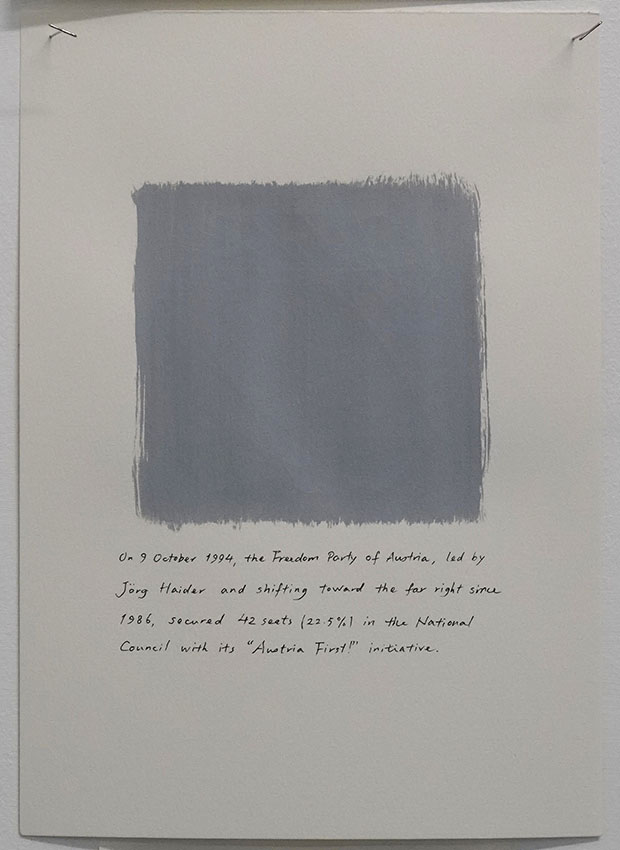 On 9 October 1994, the Freedom Party of Austria, led by
Jörg Haider and shifting toward the far right since
1986, secured 42 seats (22.5%) in the National
Council with its "Austria First!" initiative.